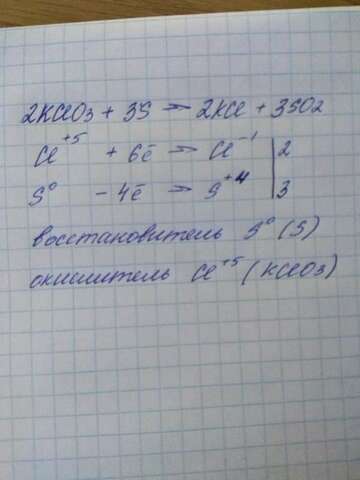 2KClO3 + 3S → 2KCl + 3SO2
Cl⁺⁵ + 6ē → Cl⁻¹ | 2
S⁰ - 4ē → S⁺⁴ | 3
восстановитель S⁰ (S)
окислитель Cl⁺⁵ (KClO3)